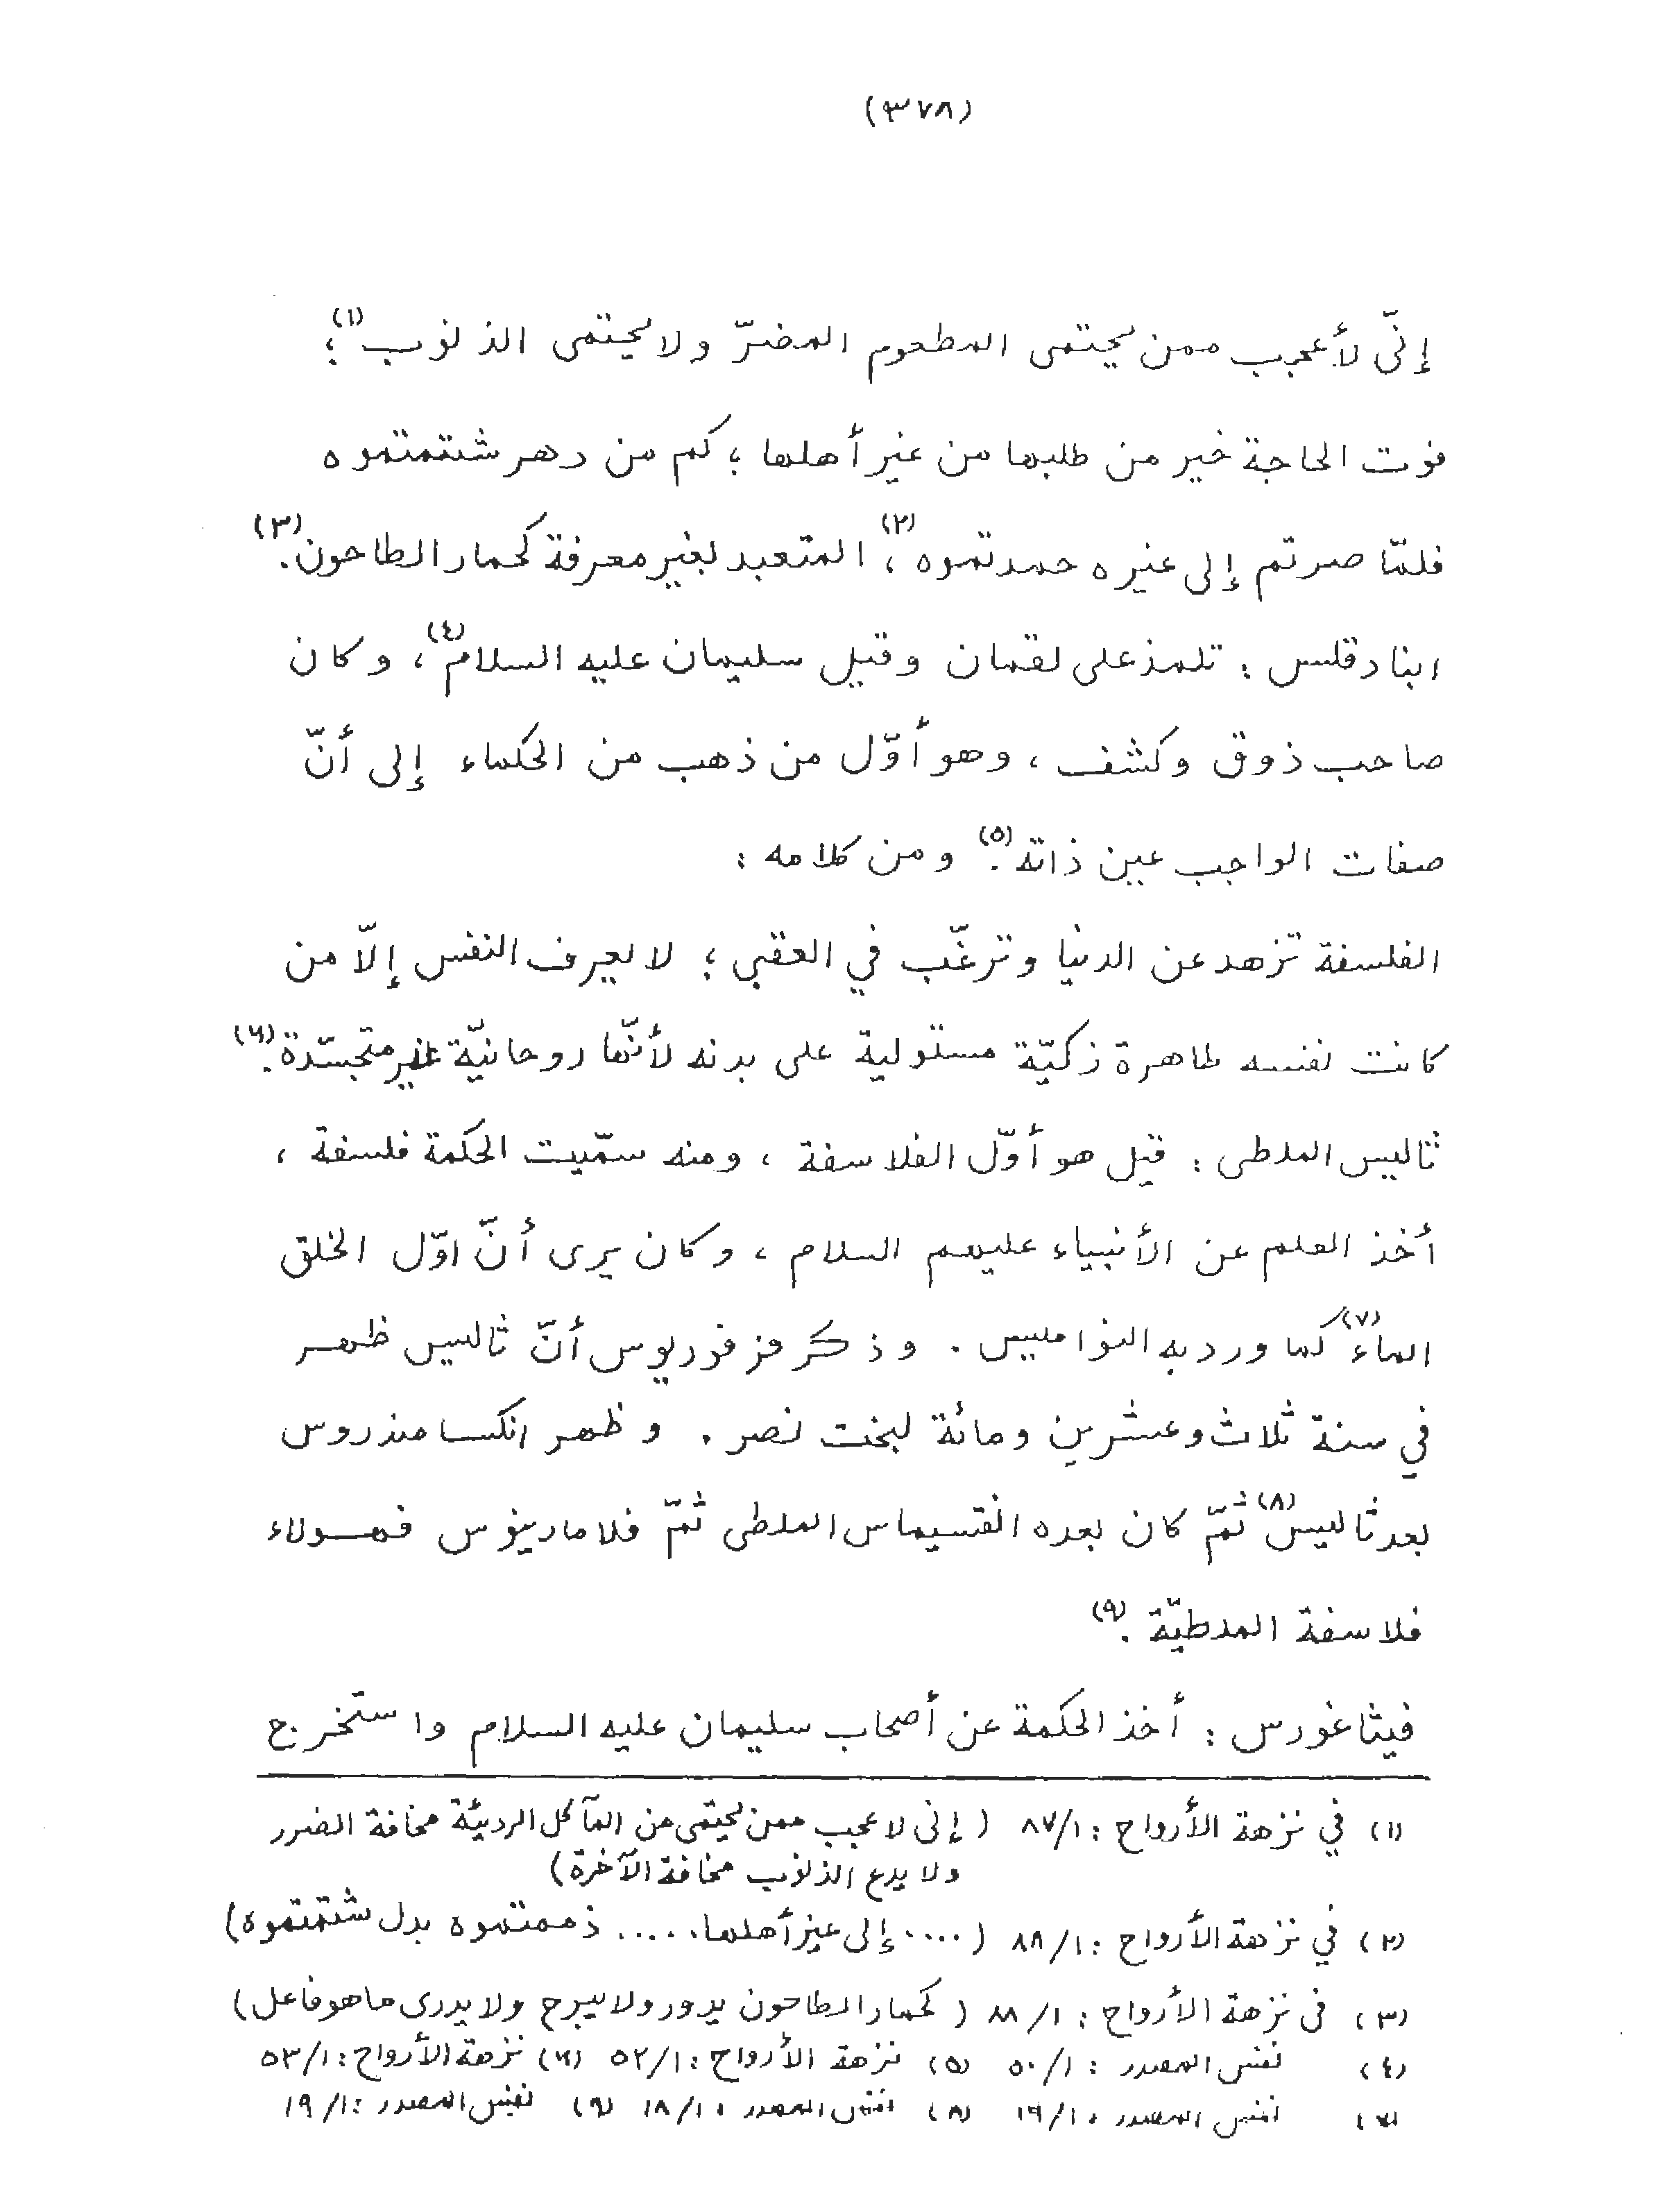 (٣٧٨)
إنّى لأعجب ممن يحتمى المطعوم المضرّ ولا يحتمى الذنوب (١)؛
فوت الحاجة خير من طلبها من غير أهلها ؛ كم من دهر شتمتموه
فلمّا صرتم إلى غيره حمدتموه (٢)، المتعبد بغير معرفة كحمار الطاحون. (٣)
ابنادقلس : تلمذ على لقمان وقبل سليمان عليه السلام (٤)، وكان
صاحب ذوق وكشف ، وهو أوّل من ذهب من الحكماء إلى أنّ
صفات الواجب عين ذاته. (٥) ومن كلامه :
الفلسفة تزهد عن الدنيا وترغّب في العقبى ؛ لا يعرف النفس إلاّ من
كانت نفسه طاهرة زكيّة مستولية على بدنه لأنّها روحانيّة غير متجسّدة. (٦)
ثاليس الملطى : قيل هو أوّل الفلاسفة ، ومنه سمّيت الحكمة فلسفة ،
أخذ العلم عن الأنبياء عليهم السلام ، وكان يرى أنّ اوّل الخلق
الماء (٧) كما ورد به النواميس . وذكر فرفوريوس أنّ ثاليس ظهر
في سنة ثلاث وعشرين ومائة لبخت نصر . وظهر انكسامندروس
بعد ثاليس (٨) ثمّ كان بعده انقسيماس الملطى ثمّ فلامارينوس فهولاء
فلاسفة الملطيّة . (٩)
فيثاغورس : أخذ الحكمة عن أصحاب سليمان عليه السلام واستخرج
(١) في نزهة الأرواح : ٨٧/١ ( إنى لاعجب ممن يحتمى من المآكل الرديئة مخافة الضرر
ولا يدع الذنوب مخافة الآخرة)
(٢) في نزهة الأرواح : ٨٨/١ ( .... إلى غير أهلها..... ذممتموه بدل شتمتموه)
(٣) فى نزهة الأرواح : ٨٨/١ ( كحمار الطاحون يدور ولا يبرح ولا يدرى ما هو فاعل)
(٤) نفس المصدر : ٥٠/١ (٥) نزهة الأرواح : ٥٢/١ (٦) نزهة الأرواح : ٥٣/١
(٧) نفس المصدر : ١٦/١ (٨) نفس المصدر : ١٨/١ (٩) نفس المصدر : ١٩/١